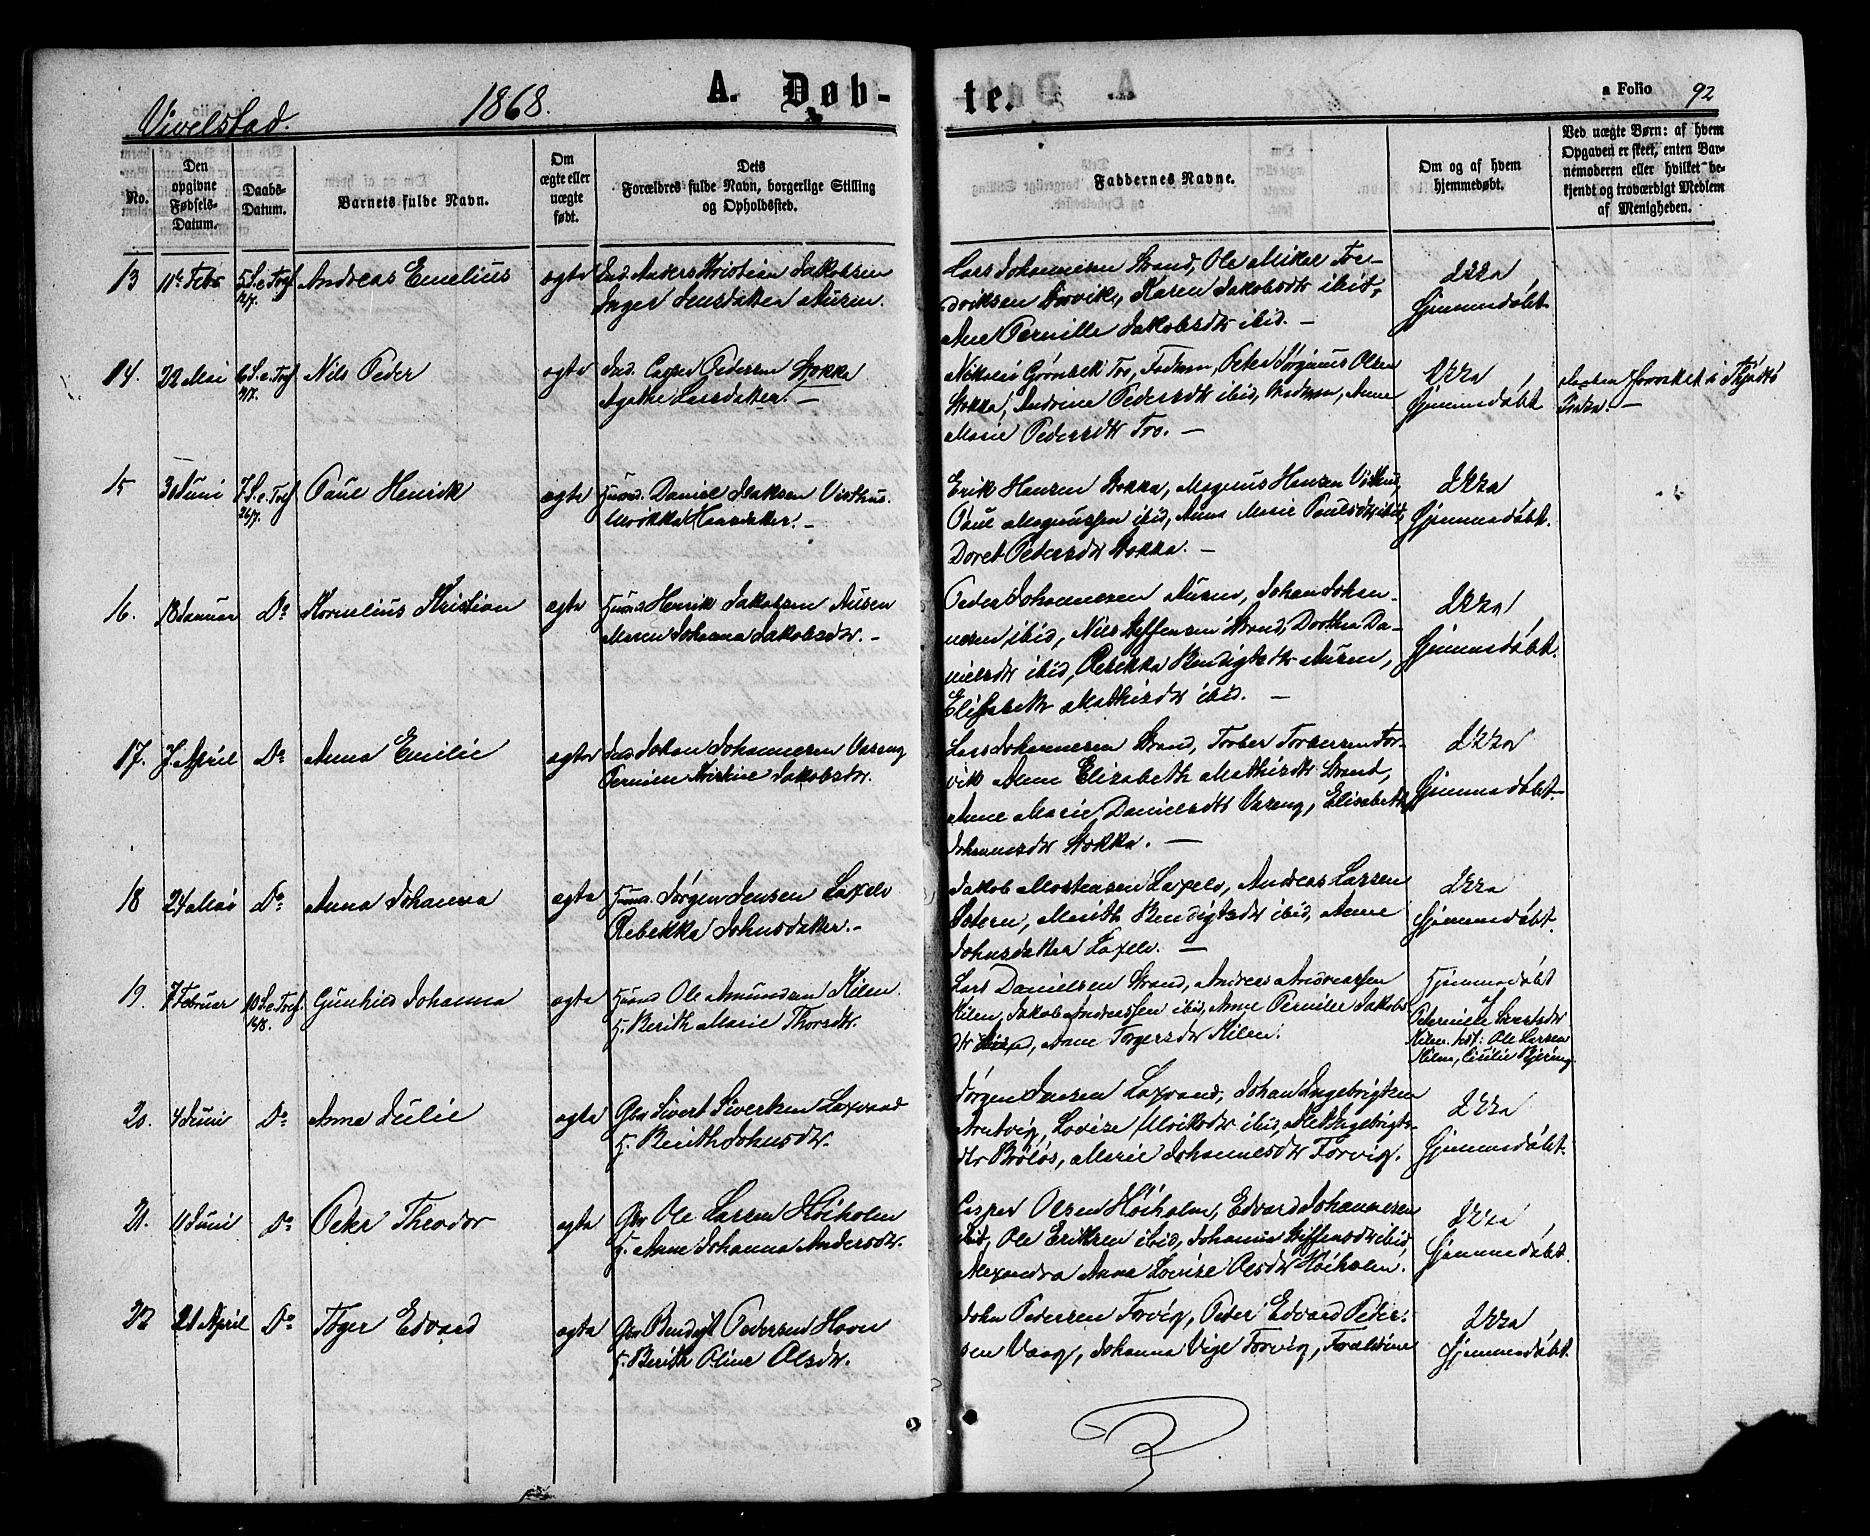 Vivelstad.
1868.
A. Døb-
te.
a Folio 92
No.
Den opgivne Fødsels-Datum.
Daabs-Datum.
Barnets fulde Navn.
Om ægte eller uægte født.
Dets
Forældres fulde Navn, borgerlige Stilling
og Opholdssted.
Faddernes Navne.
Om og af hvem
hjemmedøbt.
Ved uægte Børn: af hvem
Opgaven er skeet, enten Bar-
nemoderen eller hvilket be-
kjendt og troværdigt Medlem
af Menigheden.
13 11te Febr 5 S. e. Tref 12/7. Andreas Emelius ægte Ind. Anders Kristian Jakobsen
Inger Jensdatter Ausen.
Lars Johannesen Strand, Ole Mikal Fre-
driksen Forvik, Karen Jakobsdtr ibid,
Ane Pernille Jakobsdtr ibid. —
Hjemmedøbt.
14. 22 Mai 6 S. e. Tref Nils Peder ægte Ind. Casper Pedersen Stokka
Agathe Larsdatter. —
Nikolai Grønbek Tro, Peter Jørginus Olsen
Stokka, Andrine Pedersdtr ibid, Anne
Marie Pedersdtr Tro. —
Hjemmedøbt
15 3 Juni 7 S. e. Tref 26/7. Paul Henrik ægte Huusm. Daniel Isaksen Visthus.
Hansdatter. —
Erik Hansen Stokka, Magnus Hansen Visthus,
Paul Magnussen ibid, Anna Marie Paulsdtr ibid,
Doret Pedersdtr Stokka. —
Hjemmedøbt.
16. 18 Januar Do Kornelius Kristian ægte Huusm Henrik Jakobsen Ausen
Maren Johanna Jakobsdtr. —
Peder Johannesen Ausen, Johan Johan-
nesen ibid, Nils Steffensen Strand, Dorthea Da-
nielsdtr ibid, Rebekka Bendigtsdtr Ausen,
Elisabeth Mathisdtr ibid. —
Hjemmedøbt.
17. 7 April Do Anna Emilie ægte Ind Johan Johannesen Vareng
Kirstine Jakobsdtr.
Lars Johannesen Strand, Torber Torbersen For-
vik Anne Elizabeth Mathisdtr Strand,
Anne Marie Danielsdtr Vareng, Elisabeth
Johannesdtr Stokka. —
Hjemmedøbt.
18 24 Mai Do Anna Johanna ægte Huusm. Jørgen Jensen Laxelv
Rebekka Johnsdatter. —
Jakob Mortensen Laxelv, Andreas Larsen
Marith Bendigtsdtr ibid, Anne
Johnsdatter Laxelv. —
Hjemmedøbt.
19. 7 Februar 10 S. e. Tref. 16/8. Gunhild Johanna ægte Huusm Ole Amundsen Kilen
H. Berith Marie Thorsdtr.
Lars Danielsen Strand, Andreas Andreassen
Kilen, Jakob Andreassen ibid, Anne Pernille Jakobs
dtr Anne Torgersdtr Kilen.
Hjemmedøbt
af
Kilen. Test: Ole Larsen
Kilen, Cecilie Bjering.
20. 4 Juni Do Anna Julie ægte Gbr Sivert Sivertsen Laxvand
H. Berith Johnsdtr.
Jørgen Jensen Laxvand, Johan Ingebrigtsen
Lovise Ulriksdtr ibid, Ingebrigts-
dtr Marie Johannesdtr Forvig.
Hjemmedøbt.
21. 11 Juni Do Peter Theodor ægte Gbr Ole Larsen Høiholm
H. Anne Johanna Andersdtr.
Casper Olsen Høiholm, Edvard Johannesen
ibid, Ole Eriksen ibid, Johanna Steffensdtr ibid,
Alexandra Anna Lovise Olsdtr Høiholm.
Hjemmedøbt.
22 21 April Do Tøger Edvard ægte Gbr Bendigt Pedersen Havn
H. Berith Oline Olsdtr.
John Pedersen Forvig, Peder Edvard Peder-
sen Vaag, Johanna Vige Forvig,
Hjemmedøbt.